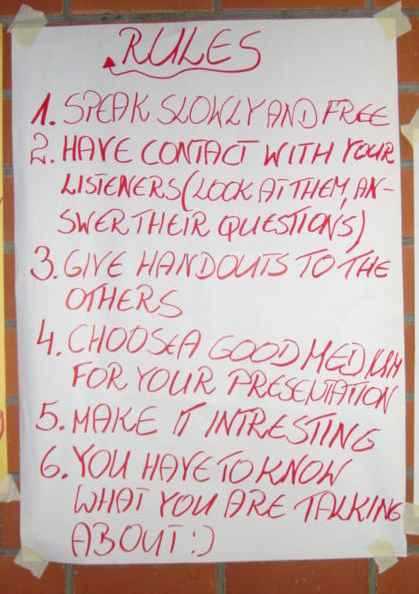 RULES
1. SPEAK SLOWLY AND FREE
2. HAVE CONTACT WITH YOUR
LISTENERS (LOOK AT THEM, AN-
SWER THEIR QUESTIONS)
3. GIVE HANDOUTS TO THE
OTHERS
4. CHOOSE A GOOD MEDIUM
FOR YOUR PRESENTATION
5. MAKE IT INTRESTING
6. YOU HAVE TO KNOW
WHAT YOU ARE TALKING
ABOUT :)